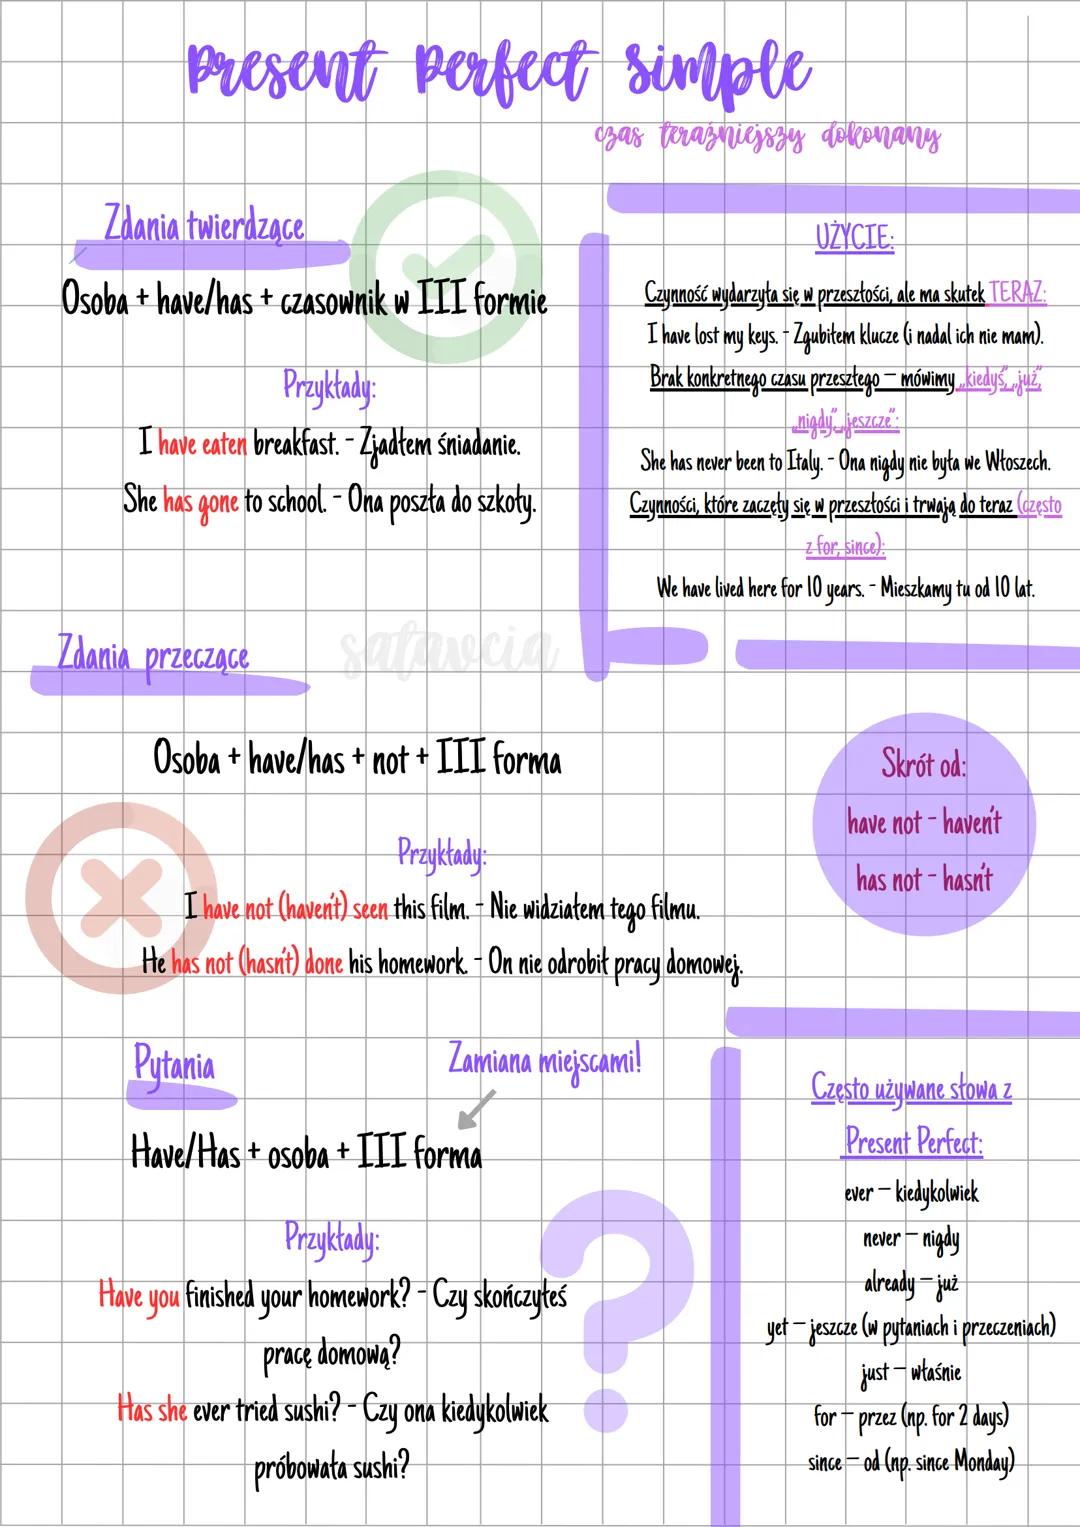 Present Perfect Simple
czas teraźniejszy dokonany
Zdania twierdzące
Osoba + have/has + czasownik w III formie
Przykłady:
I have eaten breakfast. - Zjadłem śniadanie.
She has gone to school. - Ona poszła do szkoły.
UŻYCIE:
Czynność wydarzyła się w przeszłości, ale ma skutek TERAZ:
I have lost my keys. - Zgubiłem klucze (i nadal ich nie mam).
Brak konkretnego czasu przeszłego – mówimy „kiedyś”, „już”,
„nigdy”, „jeszcze”:
She has never been to Italy. - Ona nigdy nie była we Włoszech.
Czynności, które zaczęły się w przeszłości i trwają do teraz (często
z for, since):
We have lived here for 10 years. - Mieszkamy tu od 10 lat.
satavcia
Zdania przeczące
Osoba + have/has + not + III forma
Przykłady:
I have not (haven't) seen this film. - Nie widziałem tego filmu.
He has not (hasn't) done his homework. - On nie odrobił pracy domowej.
Skrót od:
have not - haven't
has not - hasn't
Pytania
Zamiana miejscami!
Have/Has + osoba + III forma
Przykłady:
Have you finished your homework? - Czy skończyłeś
pracę domową?
Has she ever tried sushi? - Czy ona kiedykolwiek
próbowała sushi?
Często używane słowa z
Present Perfect:
ever – kiedykolwiek
never – nigdy
already – już
yet – jeszcze (w pytaniach i przeczeniach)
just – właśnie
for – przez (np. for 2 days)
since – od (np. since Monday)